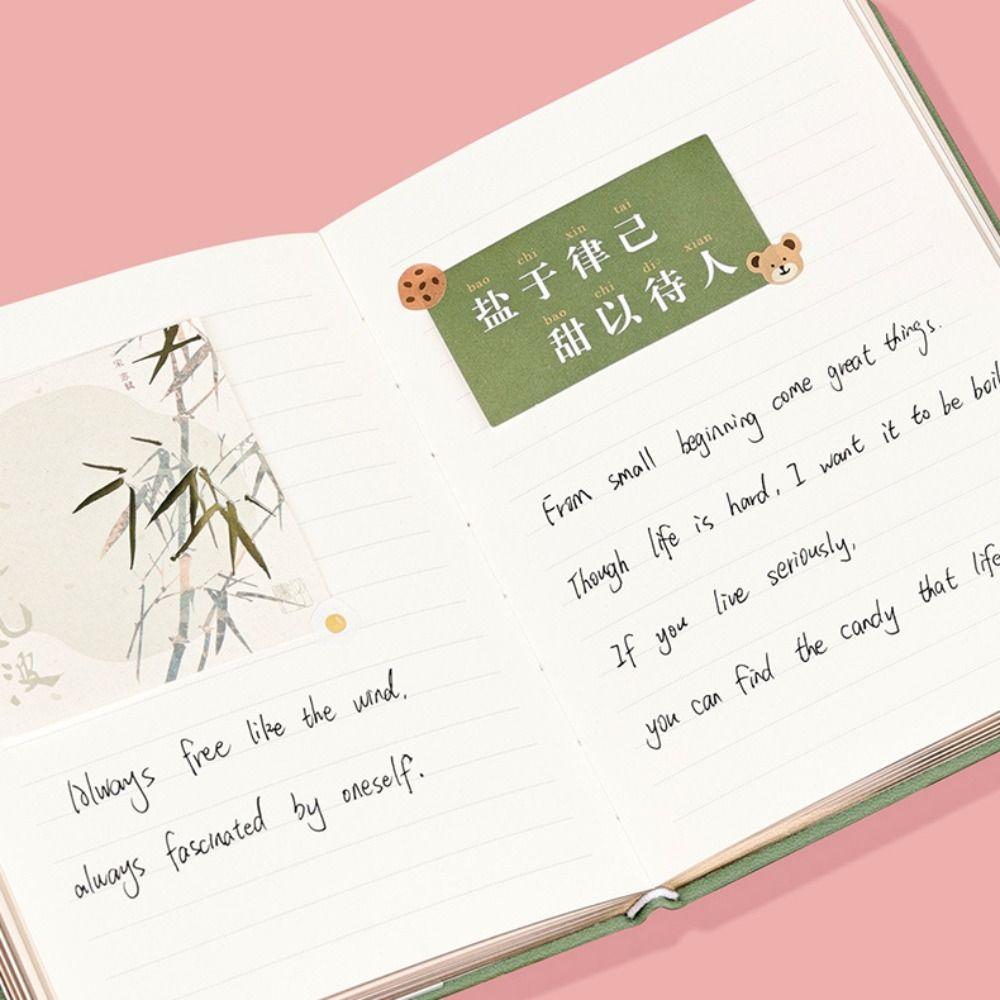 Always free like the wind.
always fascinated by oneself.
bao chi xin tai
盐于律己
bao chi di xian
甜以待人
From small beginning come great things.
Though life is hard, I want it to be boil
If you live seriously,
you can find the candy that life